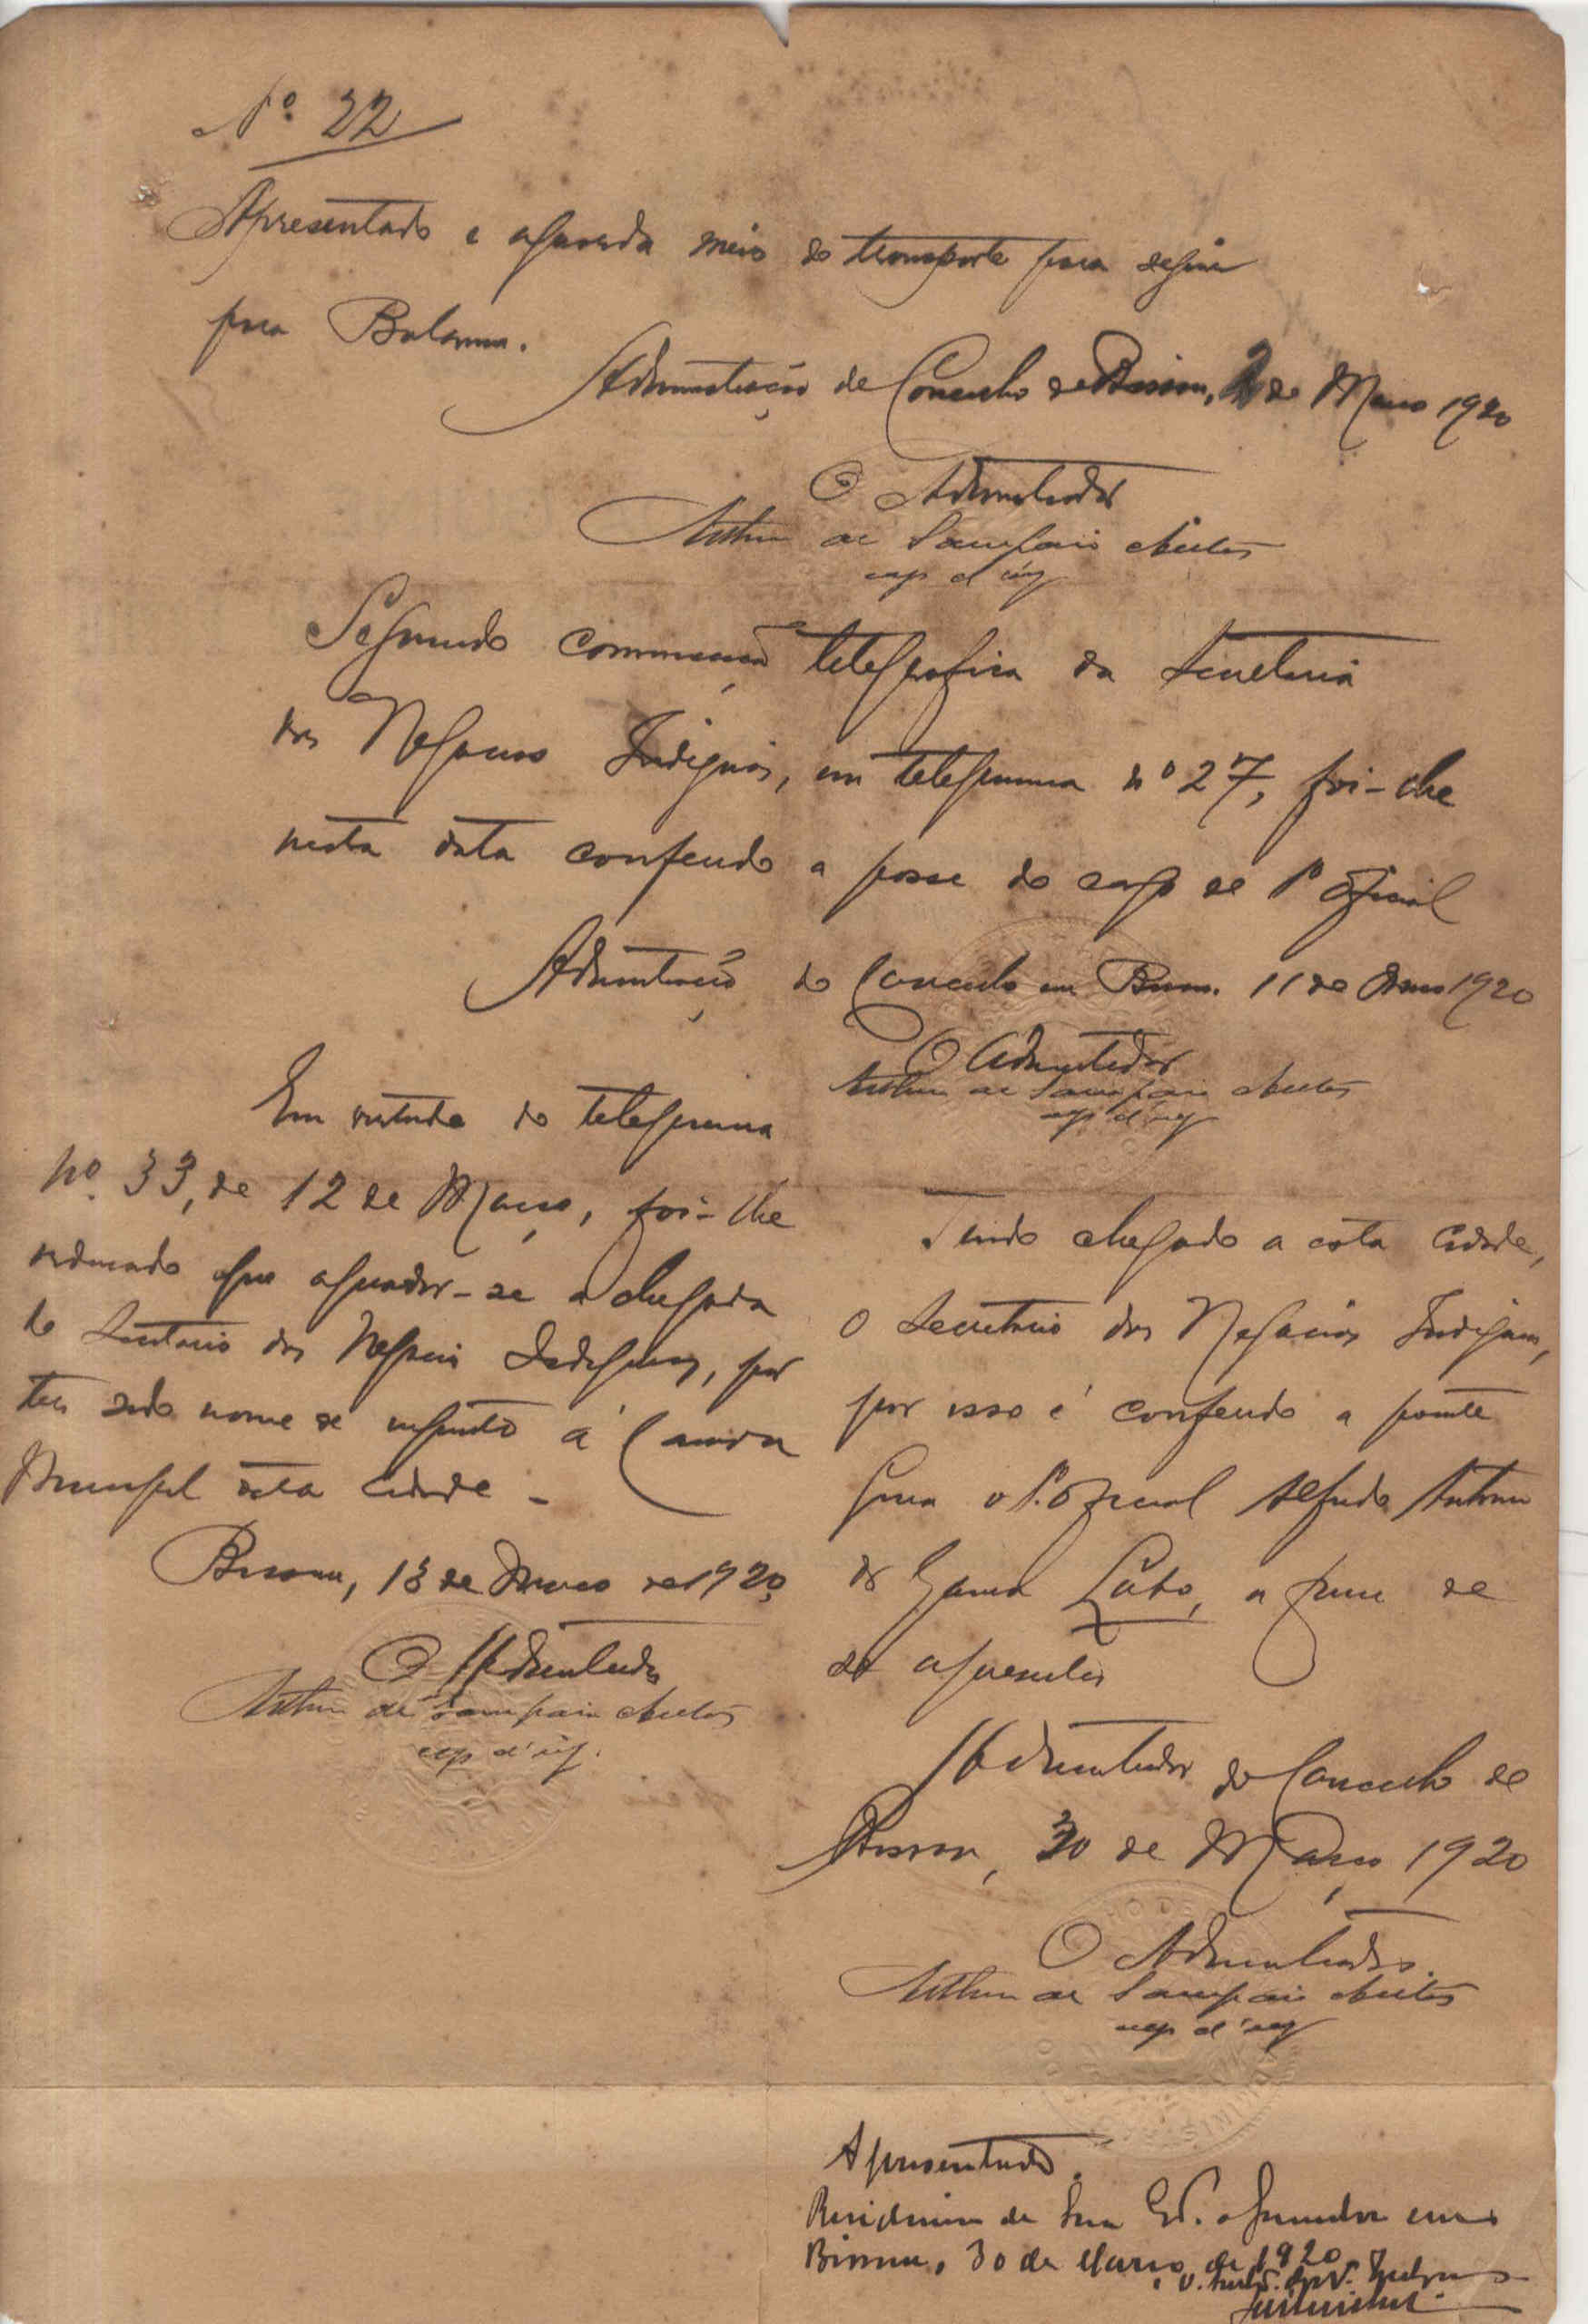 Nº 22
Apresentado e aguarda meio de transporte para seguir
para Bolama.
Administração do Concelho de Bissau, 2 de Março 1920
O Administrador
Arthur de Sampaio Antas
cap. d'inf
Segundo communicação telegrafica da Secretaria
dos Negocios Indigenas, em telegrama nº 27, foi-lhe
nesta data conferido a posse do cargo de 1º oficial
Administração do Concelho em Bissau. 11 de Março 1920
O Administrador
Arthur de Sampaio Antas
cap d'inf
Em virtude do telegrama
nº. 33, de 12 de Março, foi-lhe
ordenado que aguardasse a chegada
do Secretario dos Negocios Indigenas, por
ter sido nomeado á Camara
Municipal desta cidade -
Bissau, 13 de Março de 1920,
O Administrador
Arthur de Sampaio Antas
cap d'inf.
Tendo chegado a esta cidade,
o Secretario dos Negocios Indigenas,
por isso é conferido a presente
guia o 1º. oficial Alfredo Antonio
da Gama Lobo, a fim de
se apresentar
Administrador do Concelho de
Bissau, 30 de Março 1920
O Administrador.
Arthur de Sampaio Antas
cap d'inf
Apresentado.
Residencia de Sua Exª. o Governador em
Bissau, 30 de Março de 1920